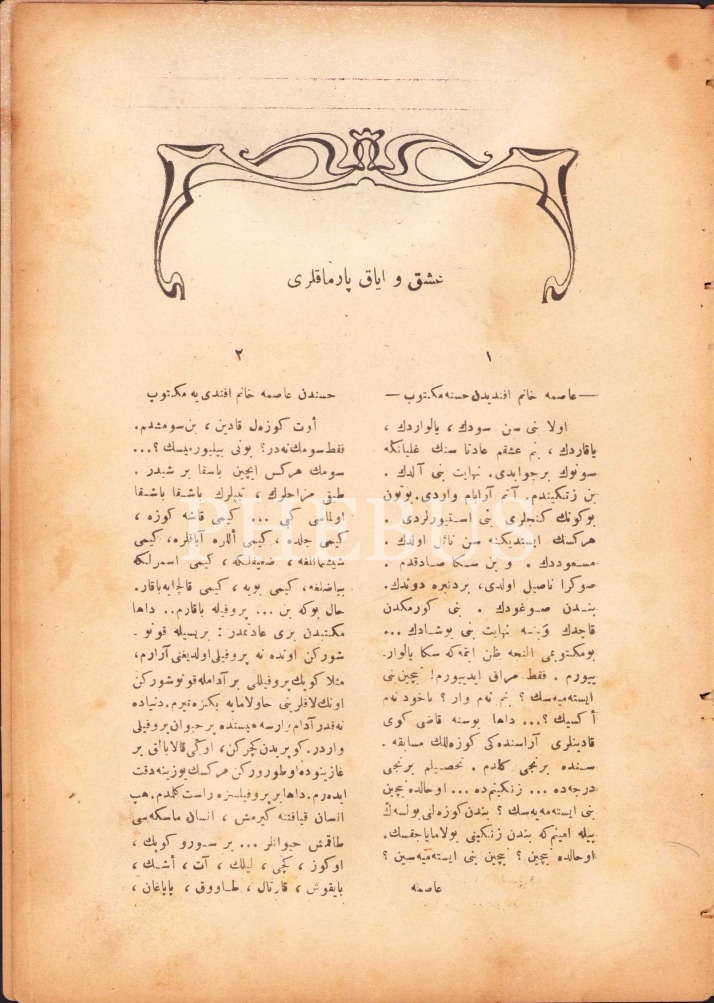 عشق و اياق پارماقلرى
١
— عاصمه خانم افنديدن حسنه مكتوب —
اولا بنى سن سودك ، يالواردك ،
ياقاردك ، بنم عشقم عادتا سنك غليانكه
سونوك برجوابدى. نهايت بنى آلدك .
بن زنكيندم. آتم آرابام واردى. بوتون
بوكونك كنجلرى بنى استيورلردى .
هركسك ايستديكنه سن نائل اولدك .
مسعوددك . و بن سكا صادقدم .
صوكرا ناصيل اولدى، بردنبره دوندك.
بندن صوغودك . بنى كورمكدن
قاچدك ونهايت بنى بوشادك ...
بومكتوبمى التجه ظن ايتمه كه سكا يالوار‌
ييورم . فقط مراق ايدييورم! نيچين بنى
ايسته ميه سك ؟ بنم نه م وار ؟ ياخود نه م
أكسيك ؟... داها بوسنه قاضى كوى
قادينلرى آراسنده كى كوزه للك مسابقه .
سنده برنجى كلدم . تحصيلم برنجى
درجه ده ... زنكينم ده ... اوحالده نيچين
بنى ايسته ميه يه سك ؟ بندن كوزه لنى بولسه ك
بيله امينم كه بندن زنكينى بولامايا جقسك.
اوحالده نيچين ؟ نيچين بنى ايسته ميه سين ؟
عاصمه
٢
حسندن عاصمه خانم افندى يه مكتوب
أوت كوزه ل قادين ، بن سومشدم.
فقط سومك نه در؟ بونى بيليورميسك ؟...
سومك هركس ايچين باشقا بر شيدر .
طبقى مزاجلرك ، تيپلرك باشقا باشقا
اولماسى كبى ... كيمى قاشه كوزه ،
كيمى جلده ، كيمى أللره آياقلره، كيمى
شيشمانلغه ، ضعيفلكه ، كيمى اسمرلكه
بياضلغه، كيمى بويه ، كيمى قالچايه باقار.
حال بوكه بن ... پروفيله باقارم.. داها
مكتبدن برى عادتمدر : بريسيله قونو .
شوركن اونده نه پروفيلى اولديغنى آرارم،
مثلا كوپك پروفيللى بر آدامله قونوشوركن
اونك لافلرينى حاولامايه بكزه تيرم. دنياده
نه قدر آدام وارسه هپسنده بر حيوان پروفيلى
واردر. كوپريدن كچركن، اوكى قالابالق بر
غازينوده اوطوروركن هركسك يوزينه دقت
ايده رم. داها بر پروفيلسزه راست كلمدم. هپ
انسان قيافتنه كيرمش ، انسان ماسكه سى
طاقمش حيوانلر ... بر سورو كوپك ،
اوكوز ، كچى ، ليلك ، آت ، أشك ،
بايقوش ، قارتال ، طاووق ، پاپاغان ،
PHEBUS